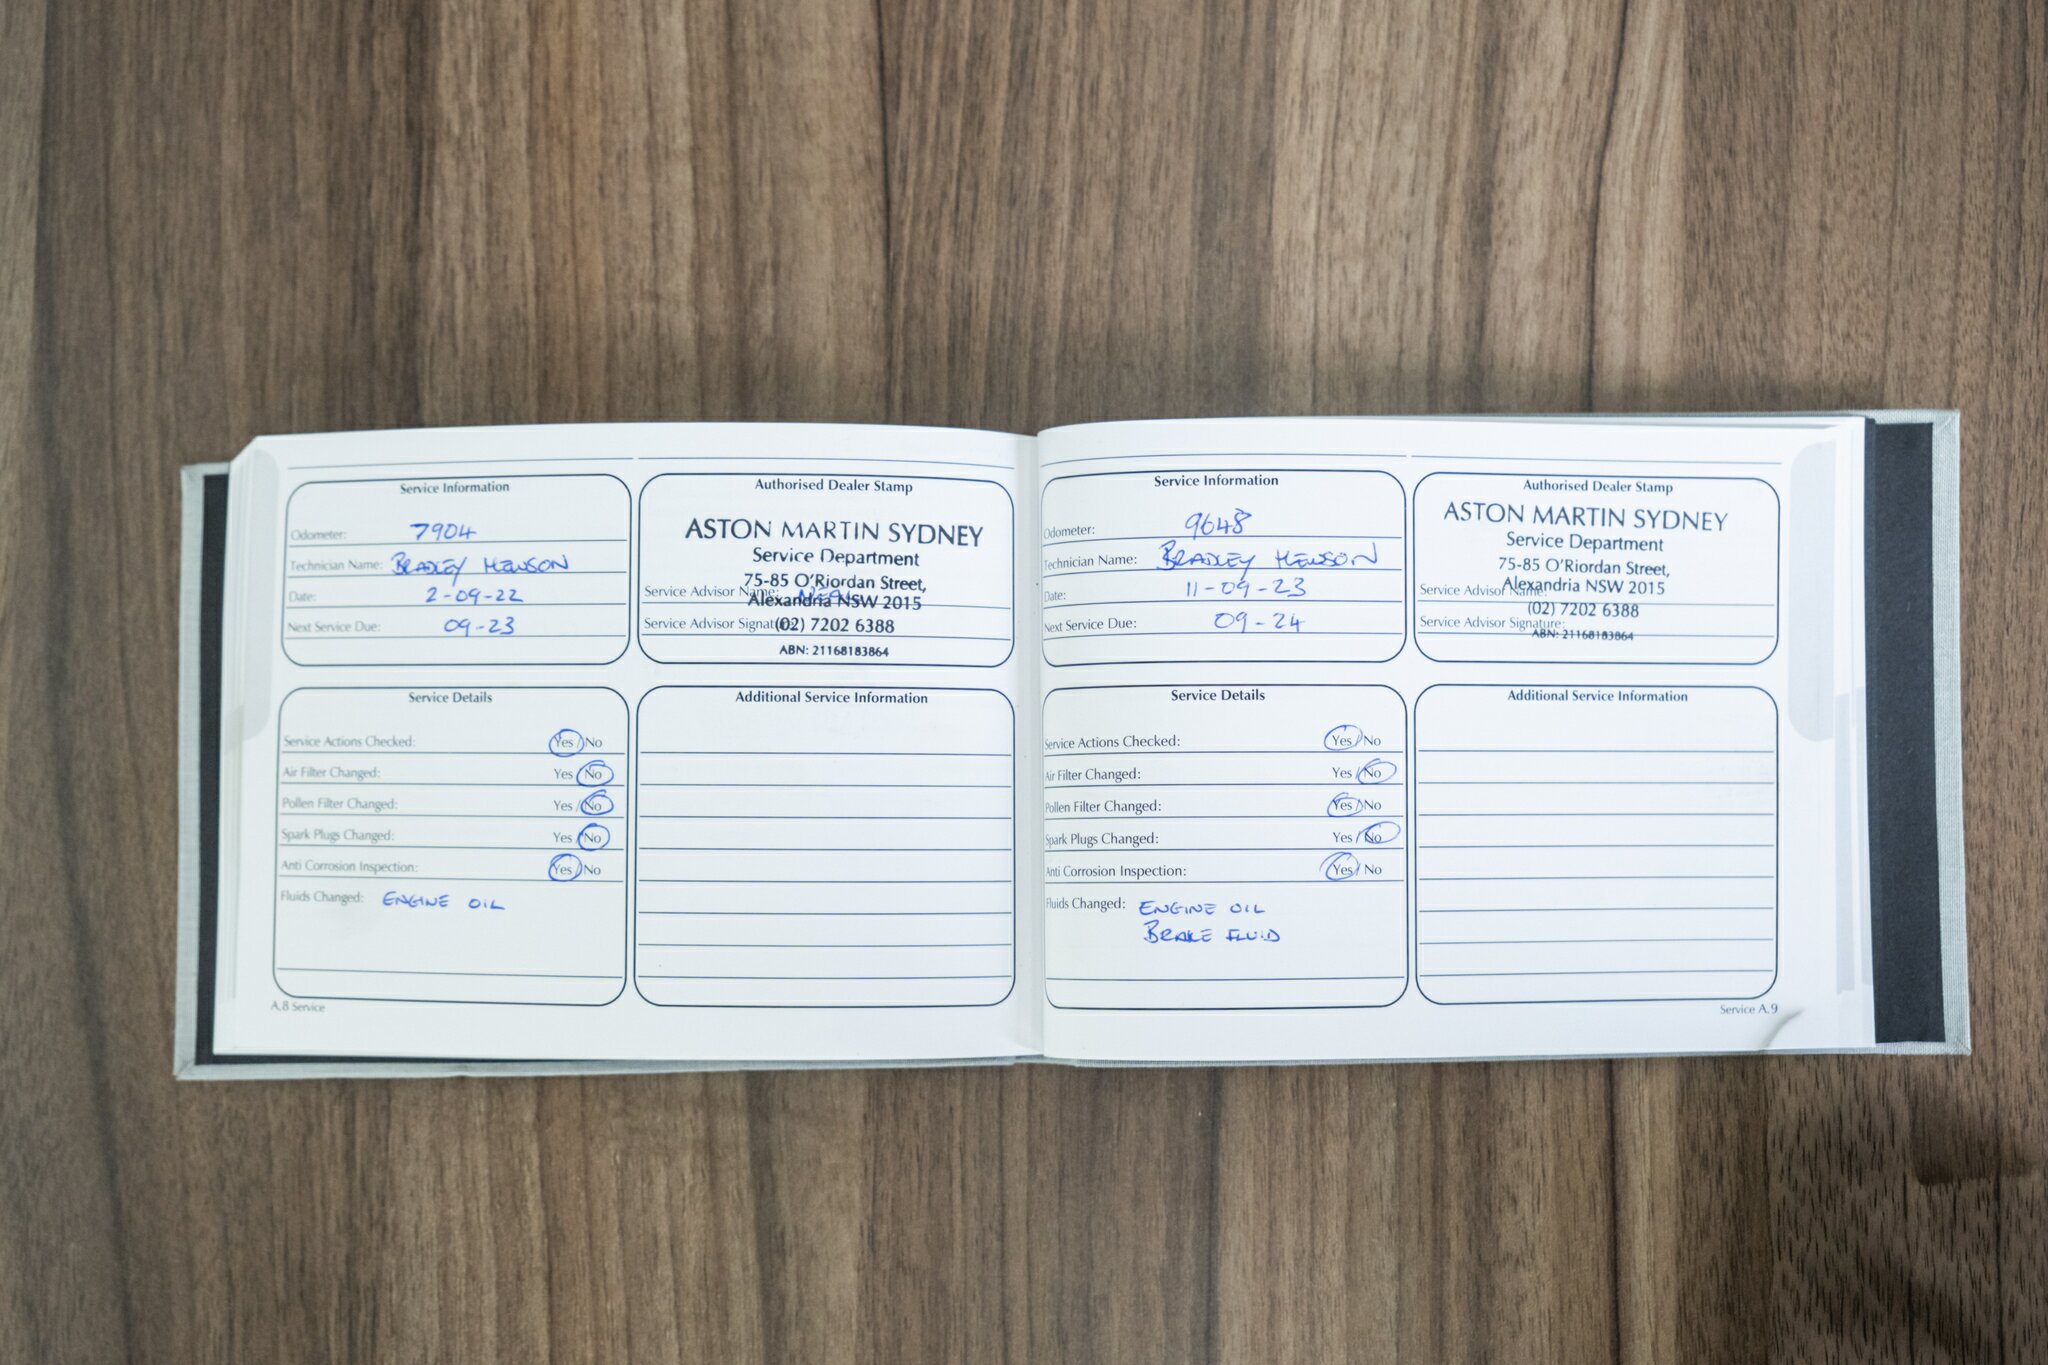 Service Information
Odometer: 7904
Technician Name: BRADLEY HEWSON
Date: 2-09-22
Next Service Due: 09-23
Authorised Dealer Stamp
ASTON MARTIN SYDNEY
Service Department
75-85 O'Riordan Street,
Service Advisor Name:
Alexandria NSW 2015
Service Advisor Signature:
(02) 7202 6388
ABN: 21168183864
Service Details
Service Actions Checked: Yes / No
Air Filter Changed: Yes / No
Pollen Filter Changed: Yes / No
Spark Plugs Changed: Yes / No
Anti Corrosion Inspection: Yes / No
Fluids Changed: ENGINE OIL
Additional Service Information
A.8 Service
Service Information
Odometer: 9648
Technician Name: BRADLEY HEWSON
Date: 11-09-23
Next Service Due: 09-24
Authorised Dealer Stamp
ASTON MARTIN SYDNEY
Service Department
75-85 O'Riordan Street,
Service Advisor Name:
Alexandria NSW 2015
(02) 7202 6388
Service Advisor Signature:
ABN: 21168183864
Service Details
Service Actions Checked: Yes / No
Air Filter Changed: Yes / No
Pollen Filter Changed: Yes / No
Spark Plugs Changed: Yes / No
Anti Corrosion Inspection: Yes / No
Fluids Changed: ENGINE OIL
BRAKE FLUID
Additional Service Information
Service A.9